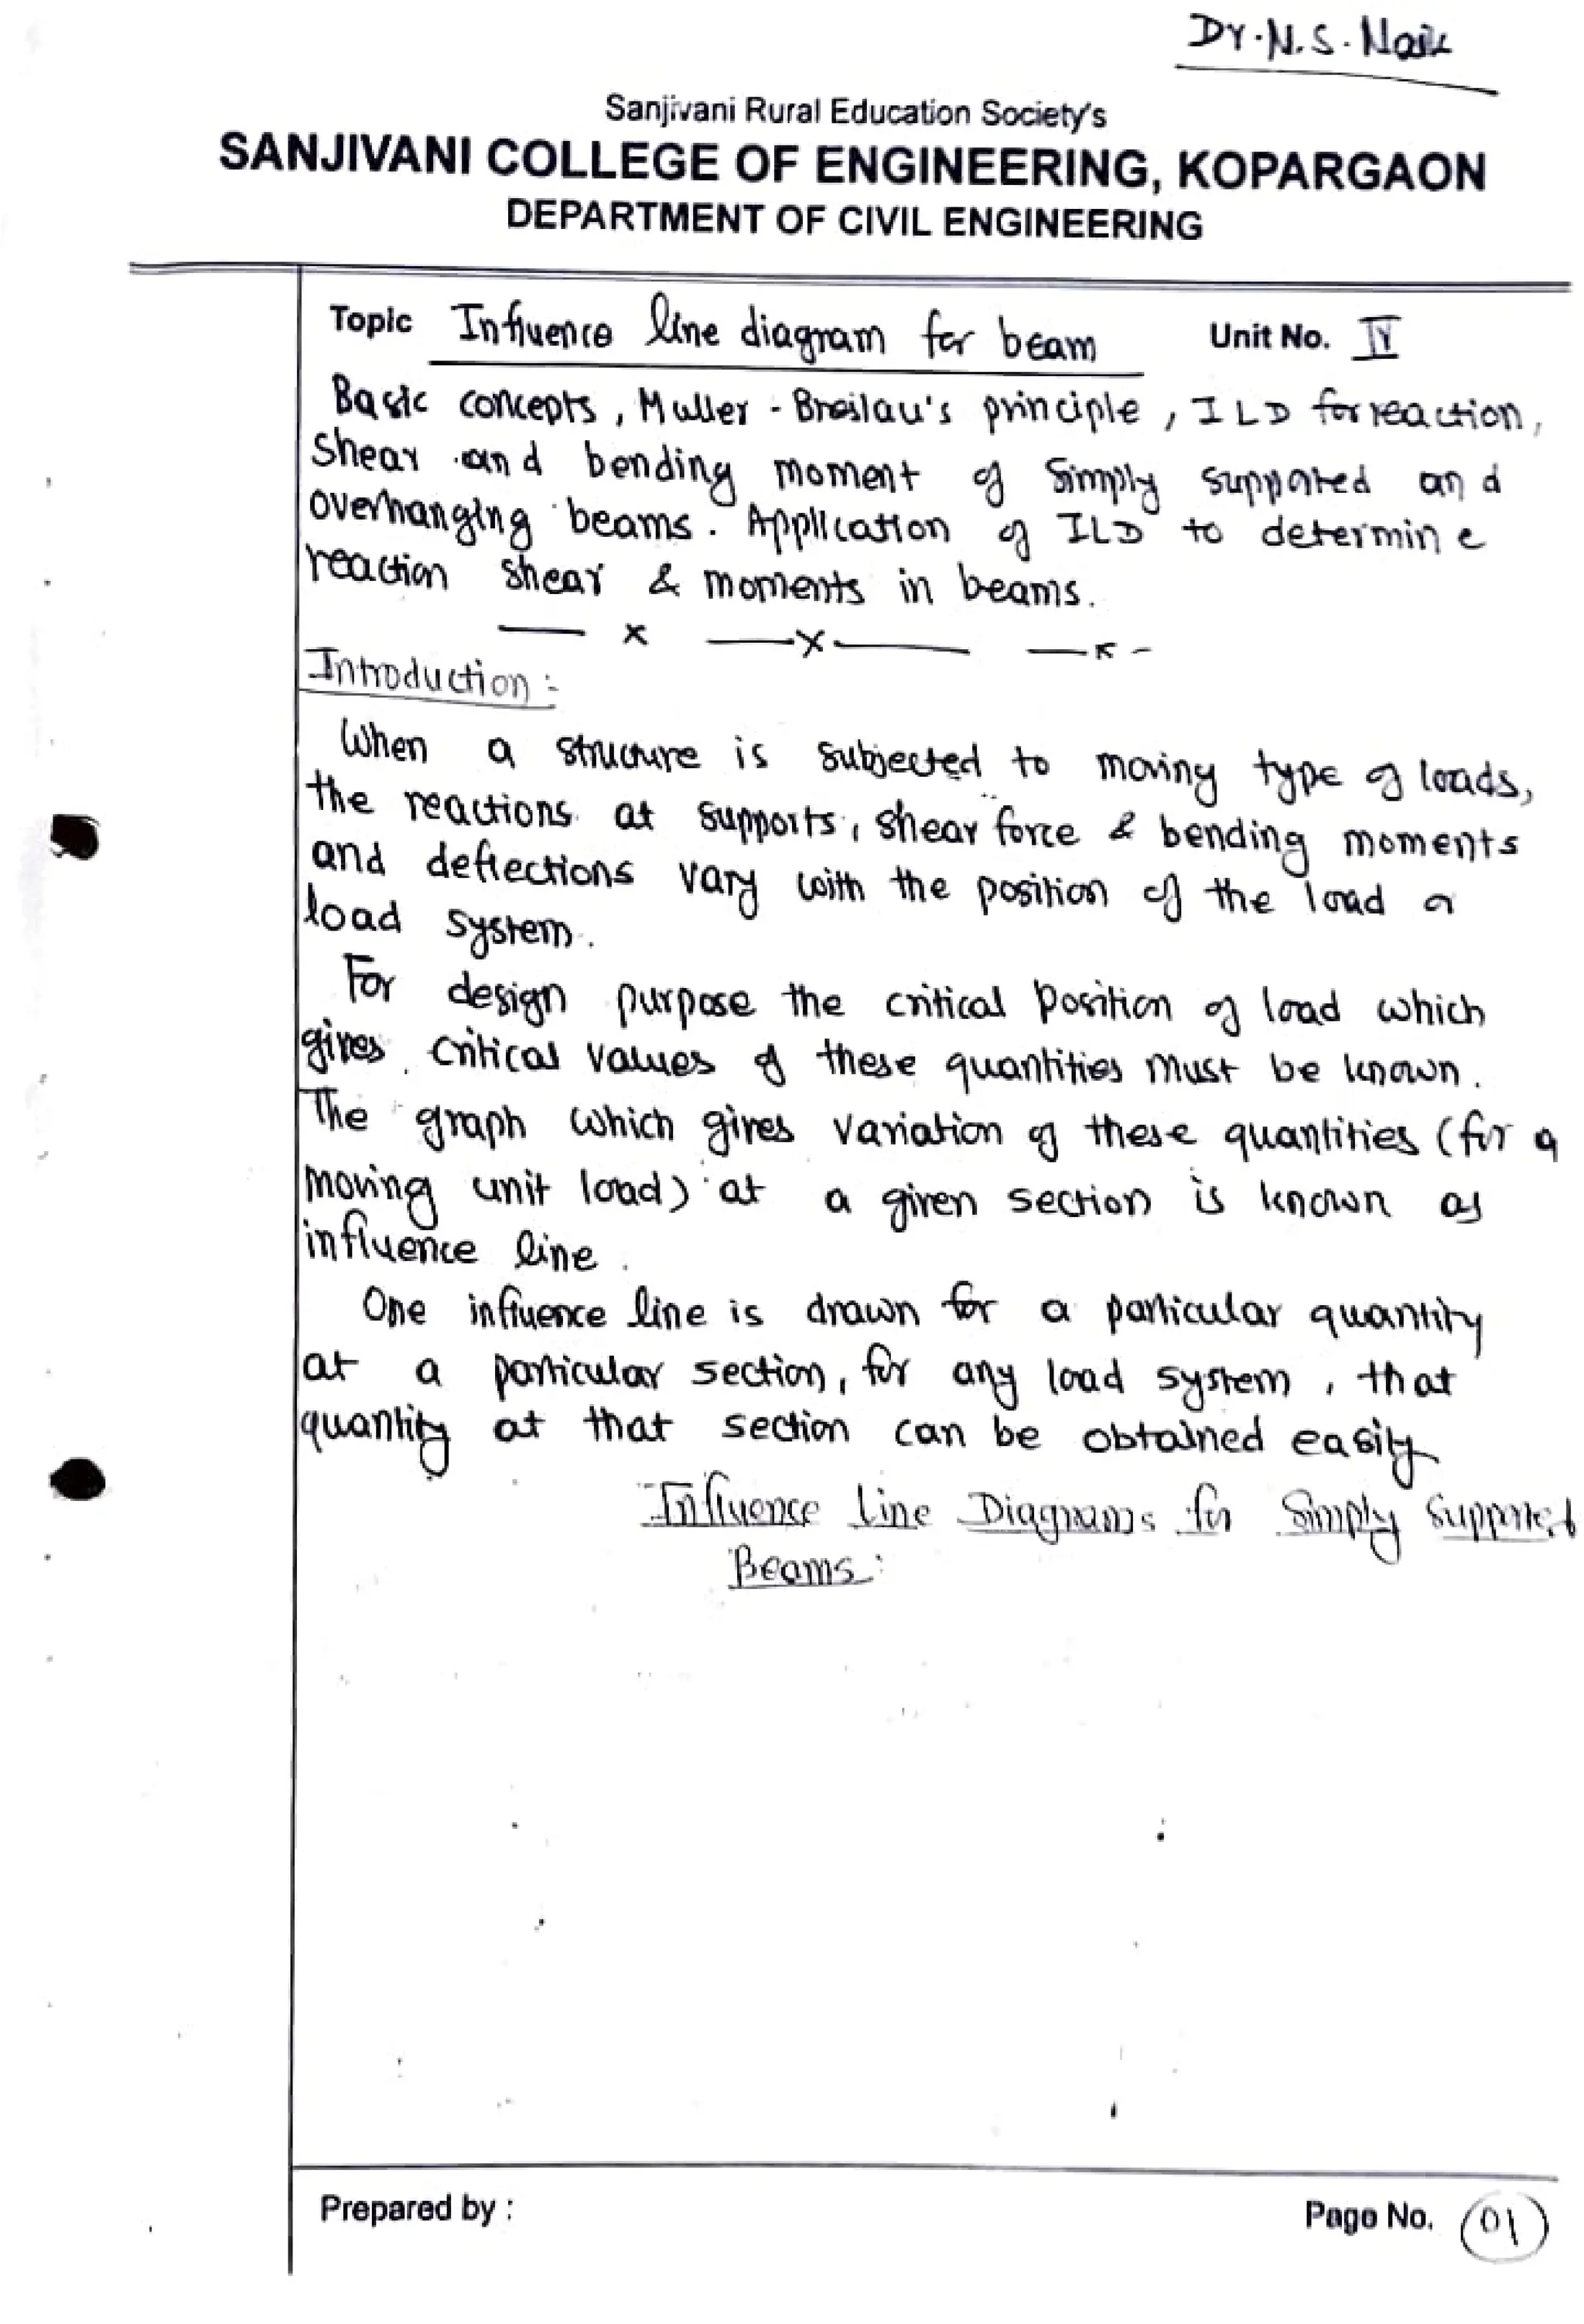 Dr. N. S. Naik
Sanjivani Rural Education Society's
SANJIVANI COLLEGE OF ENGINEERING, KOPARGAON
DEPARTMENT OF CIVIL ENGINEERING
Topic Influence line diagram for beam Unit No. IV
Basic concepts, Muller - Breslau's principle, ILD for reaction,
shear and bending moment of simply supported and
overhanging beams. Application of ILD to determine
reaction shear & moments in beams.
— x — x — — x —
Introduction :-
When a structure is subjected to moving type of loads,
the reactions at supports, shear force & bending moments
and deflections vary with the position of the load or
load system.
For design purpose the critical position of load which
gives critical values of these quantities must be known.
The graph which gives variation of these quantities (for a
moving unit load) at a given section is known as
influence line.
One influence line is drawn for a particular quantity
at a particular section, for any load system, that
quantity at that section can be obtained easily
Influence Line Diagrams for Simply Supported
Beams:
Prepared by :
Page No. 01